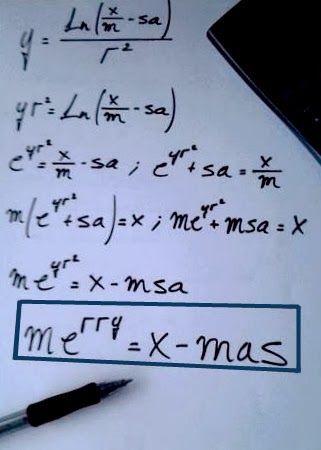 y = Ln(x/m - sa)/r²
yr² = Ln(x/m - sa)
e^yr² = x/m - sa ; e^yr² + sa = x/m
m(e^yr² + sa) = x ; me^yr² + msa = x
me^yr² = x - msa
me^rry = x - mas